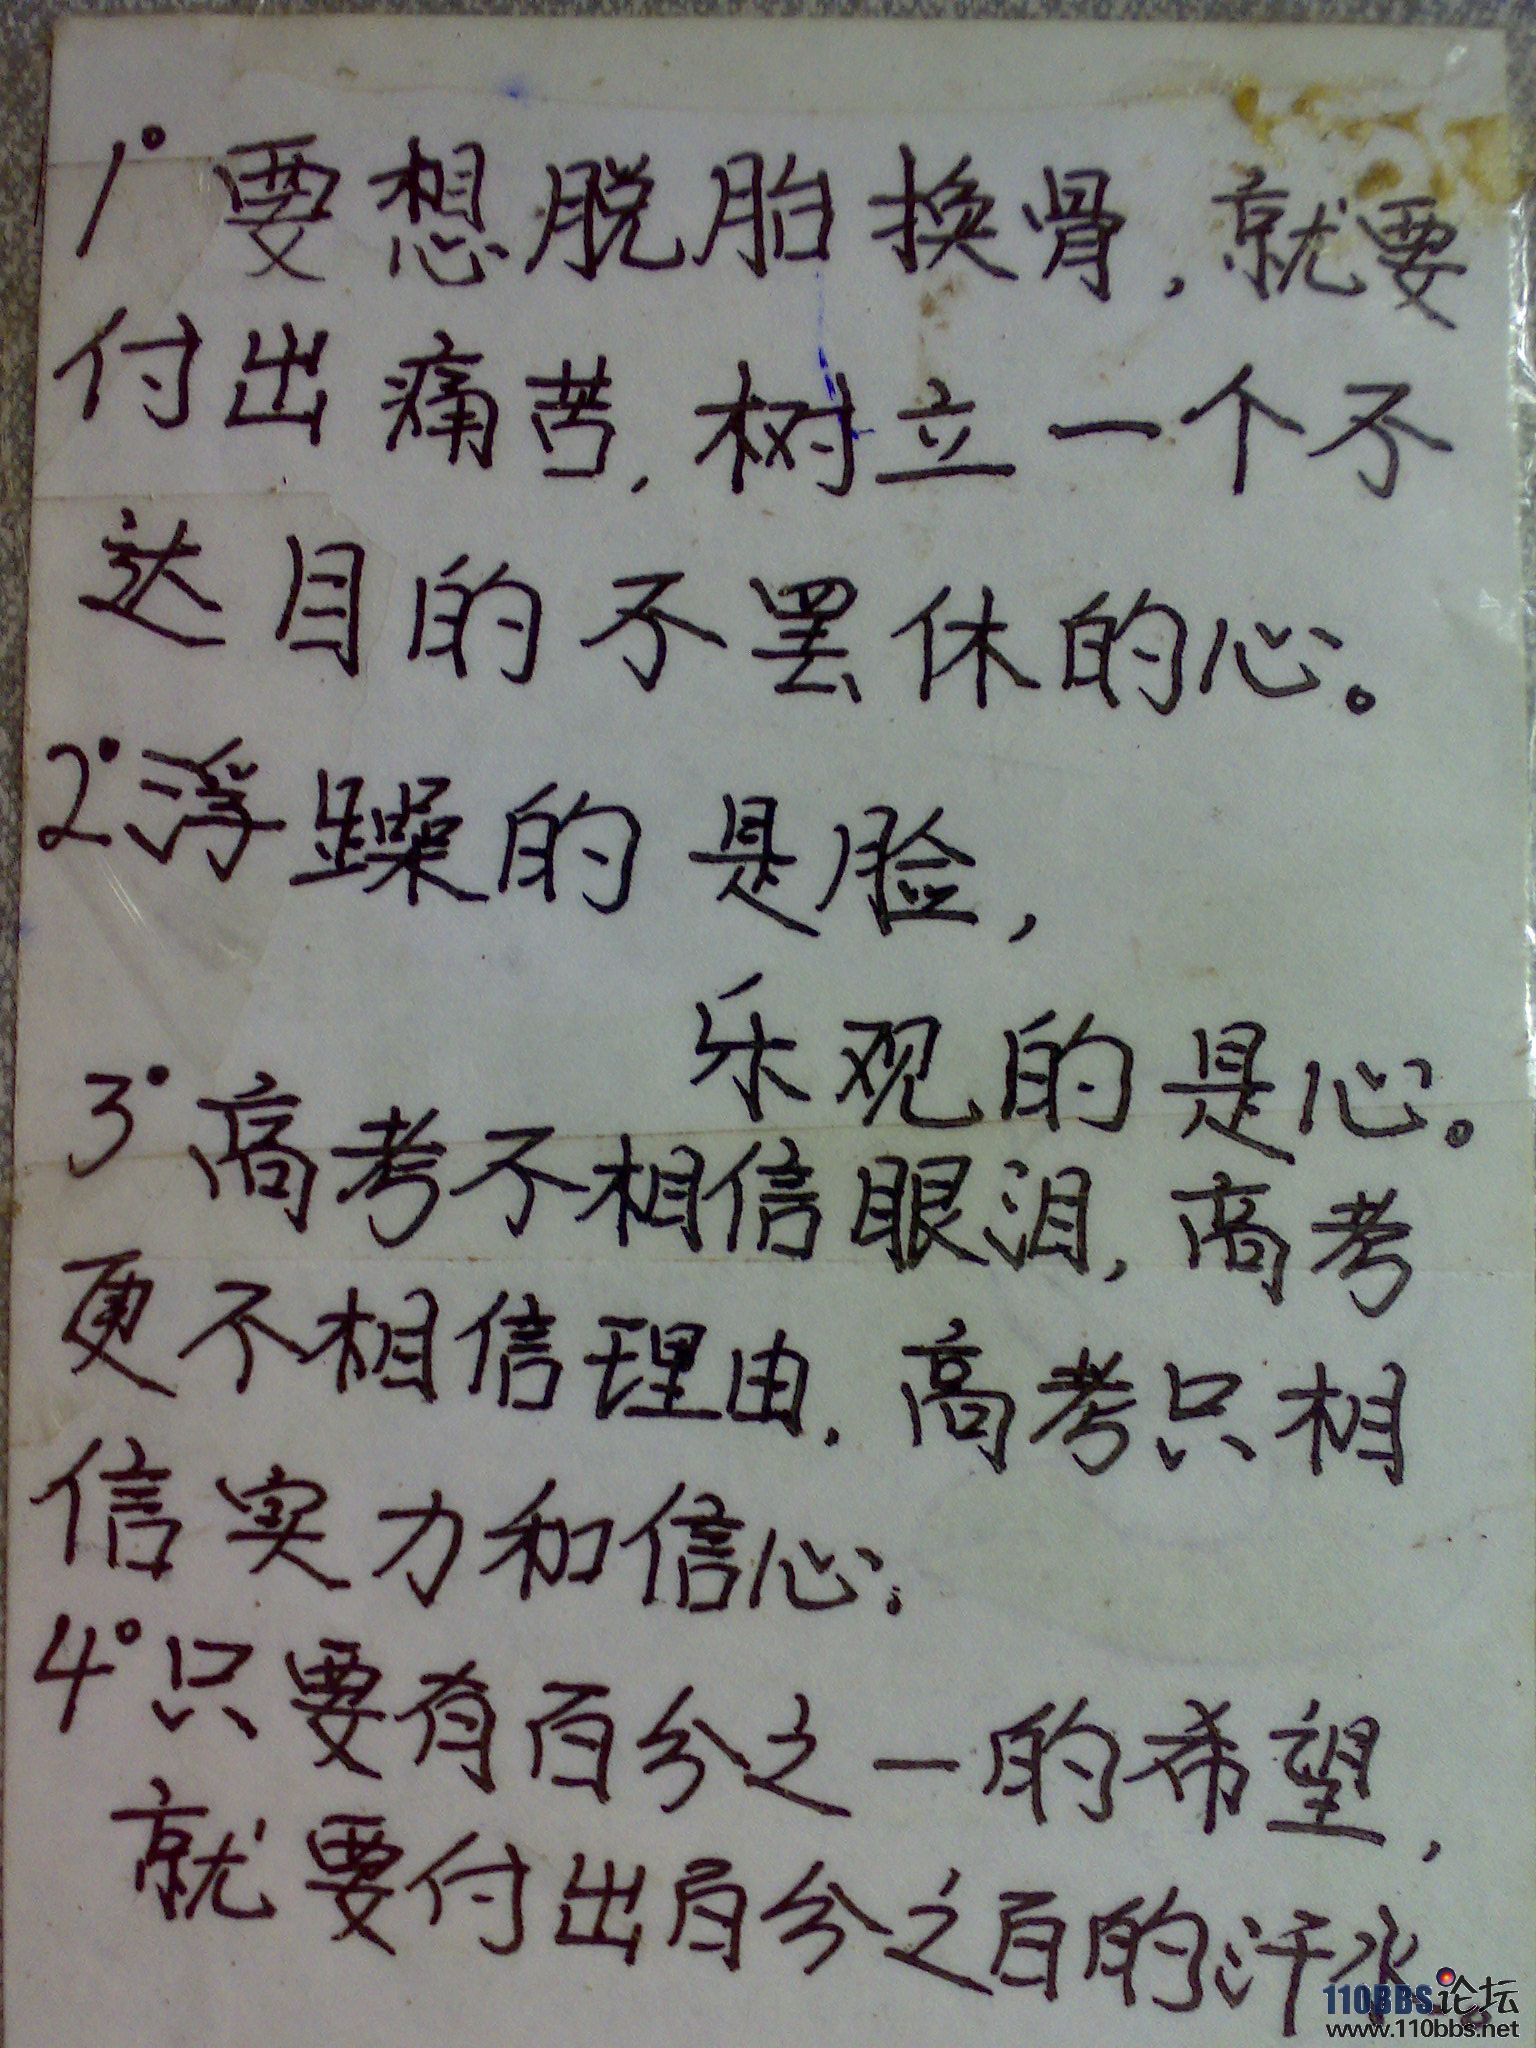 1°要想脱胎换骨,就要
付出痛苦,树立一个不
达目的不罢休的心。
2°浮躁的是脸,
乐观的是心。
3°高考不相信眼泪,高考
更不相信理由,高考只相
信实力和信心;
4°只要有百分之一的希望,
就要付出百分之百的汗水。
110BBS论坛
www.110bbs.net